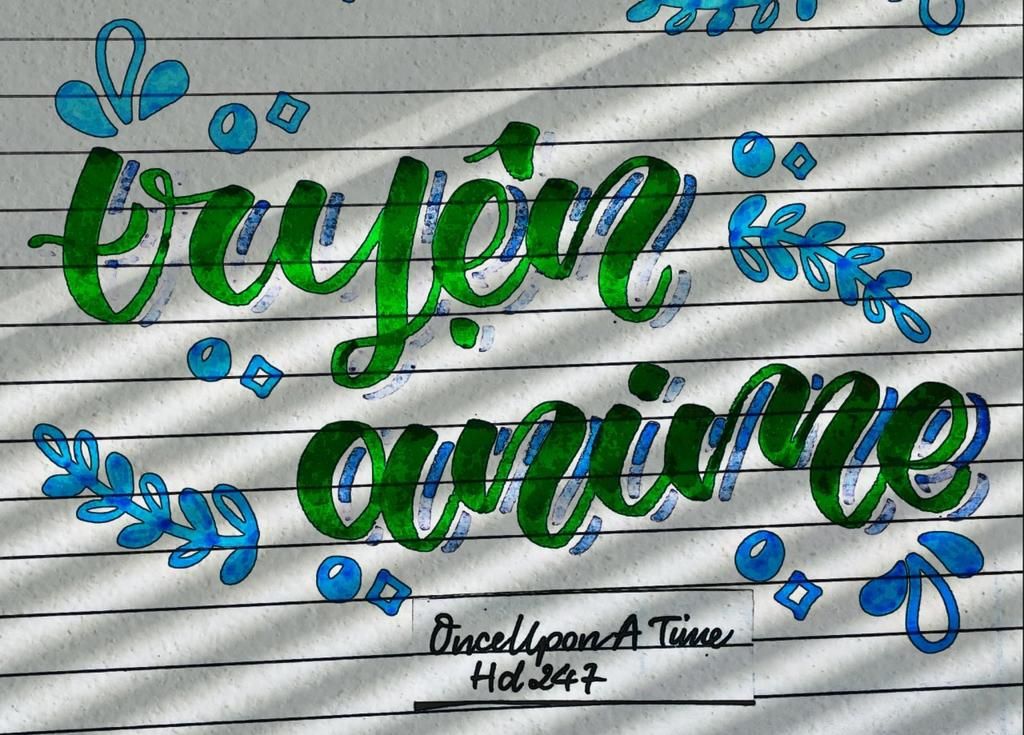 truyện
anime
OnceUpon A Time
Hd 247